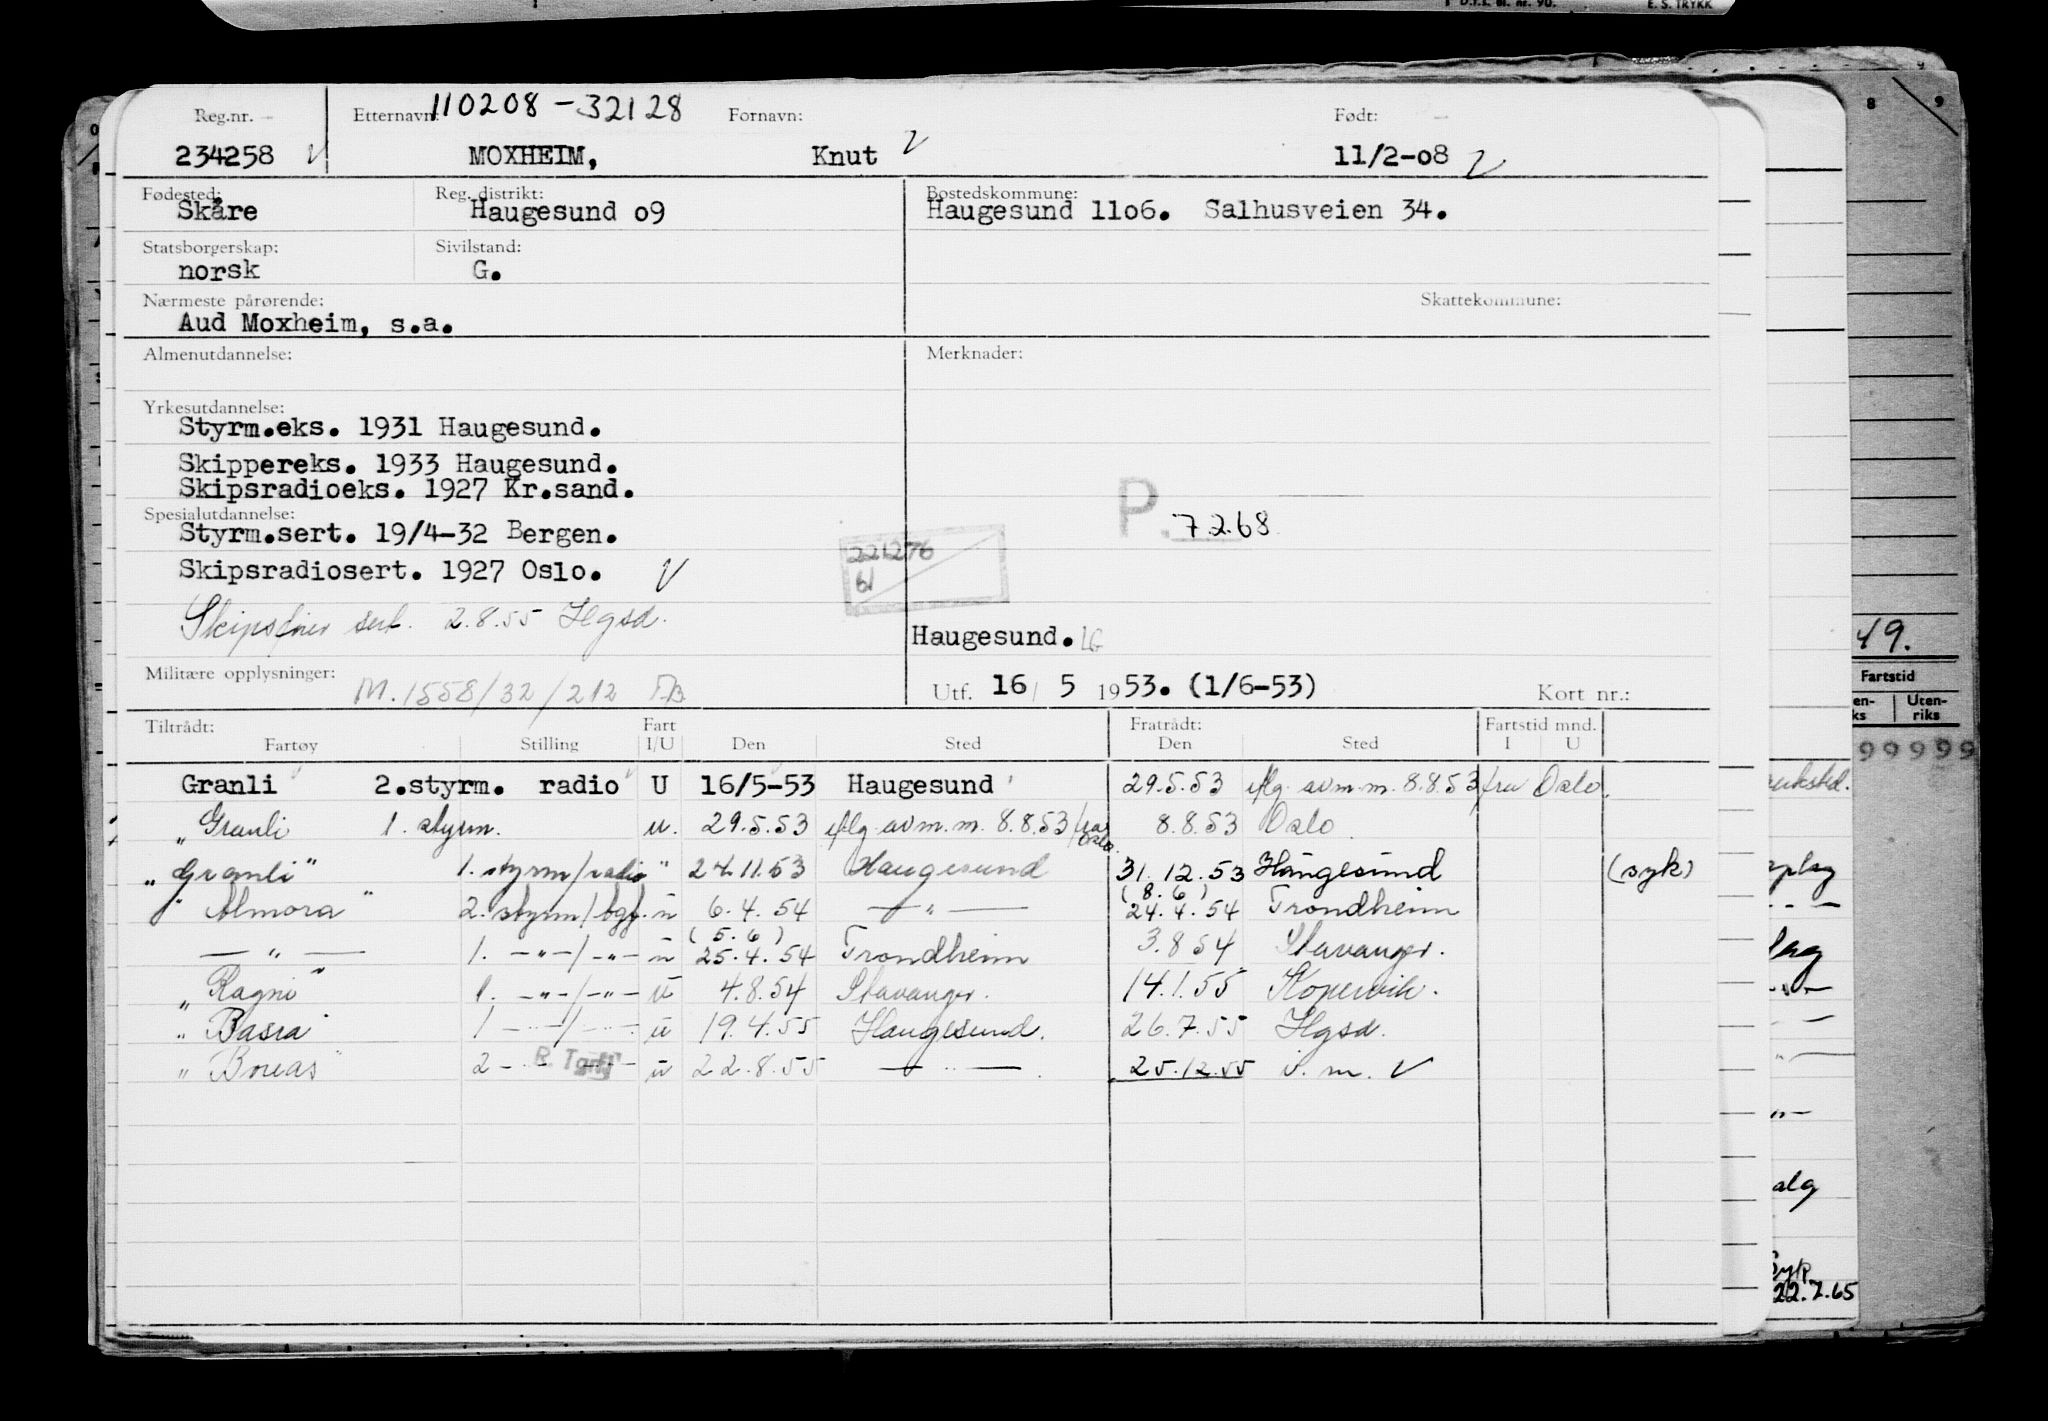 D.f.L. Bl. nr. 90. E. S. TRYKK
Reg.nr. Etternavn: 110208-32128 Fornavn: Født:
234258 MOXHEIM, Knut 11/2-08
Fødested: Reg. distrikt: Bostedskommune:
Skåre Haugesund 09 Haugesund 1106. Salhusveien 34.
Statsborgerskap: Sivilstand:
norsk G.
Nærmeste pårørende: Skattekommune:
Aud Moxheim, s.a.
Almenutdannelse: Merknader:
Yrkesutdannelse:
Styrm.eks. 1931 Haugesund.
Skippereks. 1933 Haugesund.
Skipsradioeks. 1927 Kr.sand.
P. 7.2.68
Spesialutdannelse:
Styrm.sert. 19/4-32 Bergen.
221276
61
Skipsradiosert. 1927 Oslo.
Skipsfører sert. 2.8.55 Hgsd.
Haugesund. LG
Militære opplysninger: M.1558/32/212
Utf. 16/ 5 1953. (1/6-53) Kort nr.:
Tiltrådt: Fart Fratrådt: Fartstid mnd.
Fartøy Stilling I/U Den Sted Den Sted I U
Granli 2.styrm. radio U 16/5-53 Haugesund 29.5.53 iflg. avm.m. 8.8.53 fra Oslo.
"Granli 1. styrm. u. 29.5.53 iflg. avm.m. 8.8.53 fra Oslo. 8.8.53 Oslo
"Granli" 1. styrm/radio " 24.11.53 Haugesund 31.12.53 Haugesund (syk)
" Almora " 2. styrm/tgf. u 6.4.54 — " — (8.6) 24.4.54 Trondheim
— " — 1. -"-/-"- u (5.6) 25.4.54 Trondheim 3.8.54 Stavanger.
"Ragni" 1. -"-/-"- u 4.8.54 Stavanger. 14.1.55 Kopervik.
"Basra" 1 -"-/-"- u 19.4.55 Haugesund. 26.7.55 Hgsd.
"Boreas" 2 -"- u 22.8.55 — " — . 25.12.55 i.m.
49.
Fartstid
Uten-
riks
99999
22.7.65